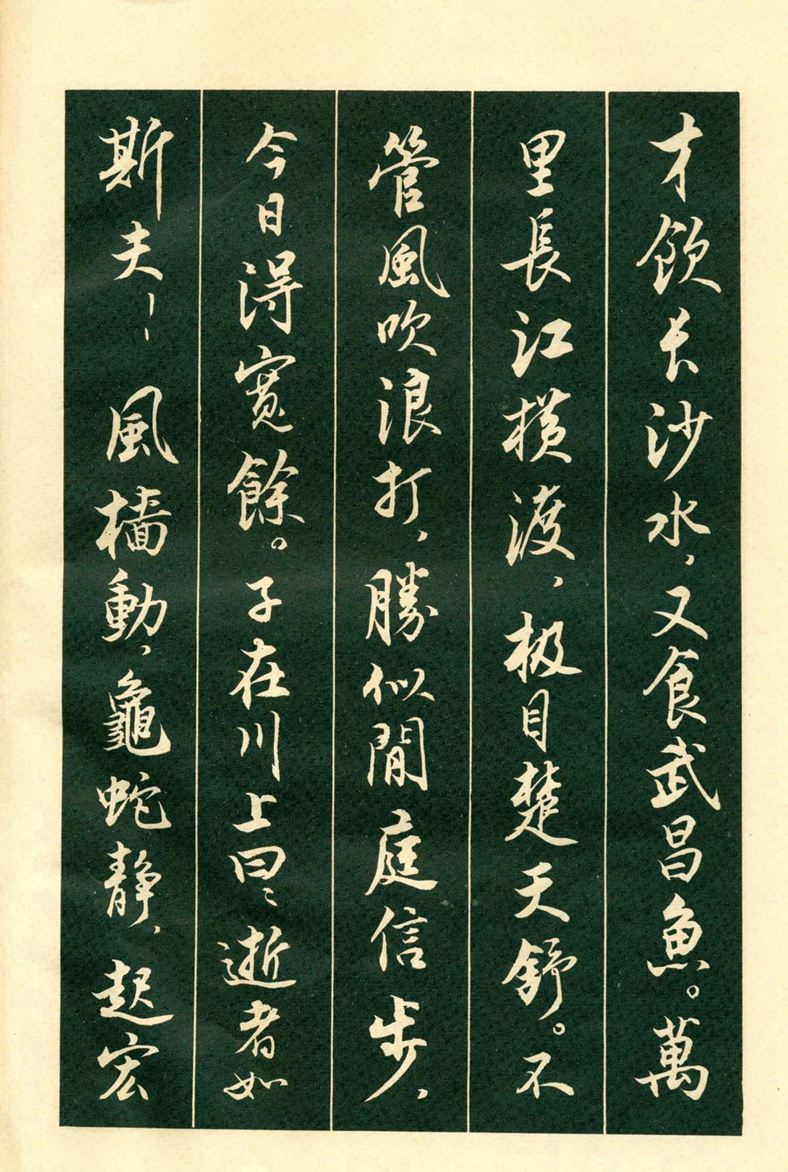 才飲长沙水,又食武昌魚。萬
里長江橫渡,极目楚天舒。不
管風吹浪打,勝似閒庭信步,
今日得寬餘。子在川上曰:逝者如
斯夫!風檣動,龜蛇静,起宏